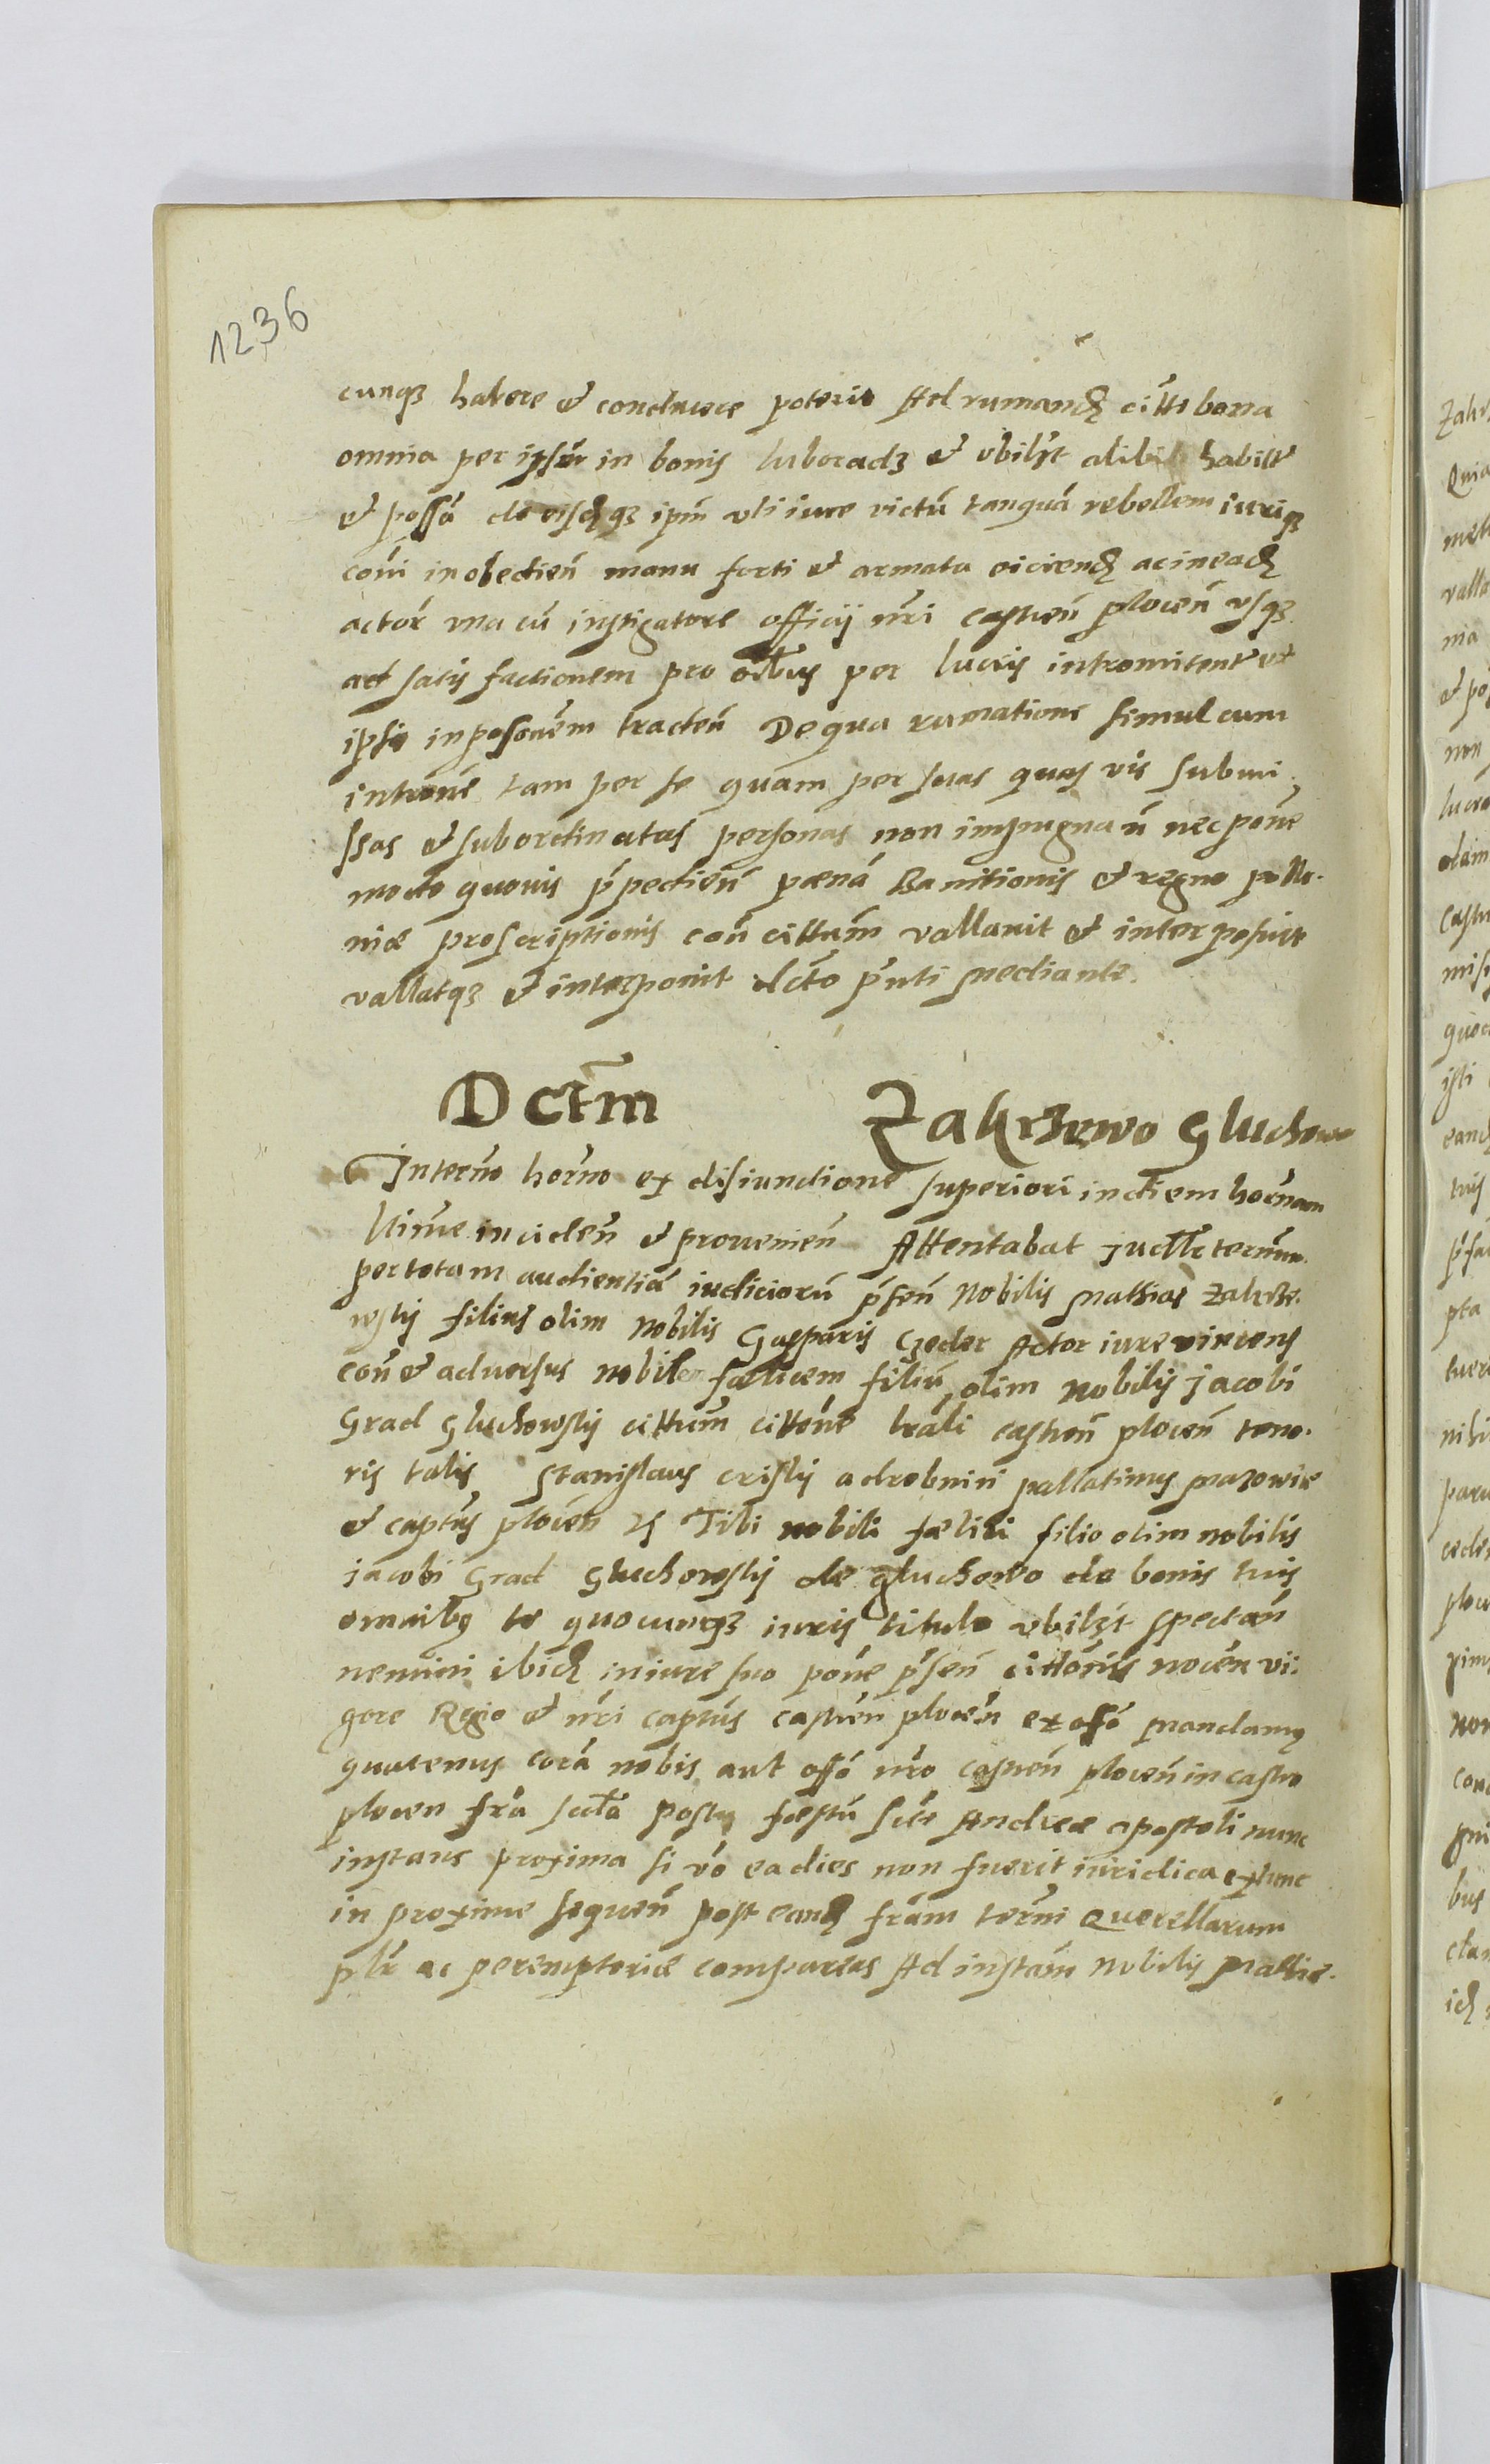 1236
cunqȝ habere et conducere poterit Ad rumandȝ citti bona
omnia per ipsum in bonis luboradȝ et vbilȝt alibi habist
et possa de eisdȝqȝ ipm vti iure victū tanquā rebellem iuriqȝ
coni inobedien̄ manu forti et armata eiciendȝ ac ineadȝ
actor̄ vna cū instigatore officij nr̄i castren̄ plocen̄ vsqȝ
ad satis factionem pro oībus per lucris intromitent et
ipse in possonem tracten̄ De qua rumatione simul cum
introne tam per se quam per suas quas vis submi
ssas et subordinatas personas non impugnan̄ nec pone
modo quouis p̄pedien̄ pœnā Banitionis et regno pollo
niæ proscriptionis con̄ cittum̄ vallauit et interposuit
vallatqȝ et interponit dcto pn̄ti mediante.
Dctm̄ Zakrzewo Gluchowo
In termo horno ex disiunctione superiori in diem hornam
kitime inciden̄ et prouenien̄ Attentabat judlr termm
per totam audientiā iudiciorū p̄sen̄ Nobilis Mathias Zakrze
wskij filius olim Nobilis Gasparis Actor iure vincens
con̄ et aduersus nobilem fælicem filiū olim Nobilis jacobi
Grad Gluchowskij cittum̄ cittone lrāli castren̄ plocen̄ teno
ris talis Stanislaus criskij a drobnin pallatinus Mazowiæ
et captus plocen̄ Tibi nobili fælici filio olim nobilis
jacobi Grad Gluchowskij de gluchowo de bonis tuis
omnibȝ te quocunqȝ iuris titulo vbilȝt spectan̄
nemini ibidȝ in iure suo pone p̄sen̄ cittonis nocen vi
gore Regio et nr̄i captus castren̄ plocen̄ ex offo mandamȝ
quatenus corā nobis aut offo nr̄o castren̄ plocen̄ in castro
plocen fra post festū Scti Andreæ apostoli nunc
instans proxima si vo ea dies non fuerit iuridica extunc
in proxime sequen̄ post eandȝ fram̄ termi Querellarum
plr ac peremptoriæ compareas Ad instam̄ Nobilis Mathiæ